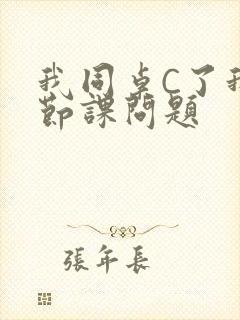 我同桌C了我
節課問題
張年長